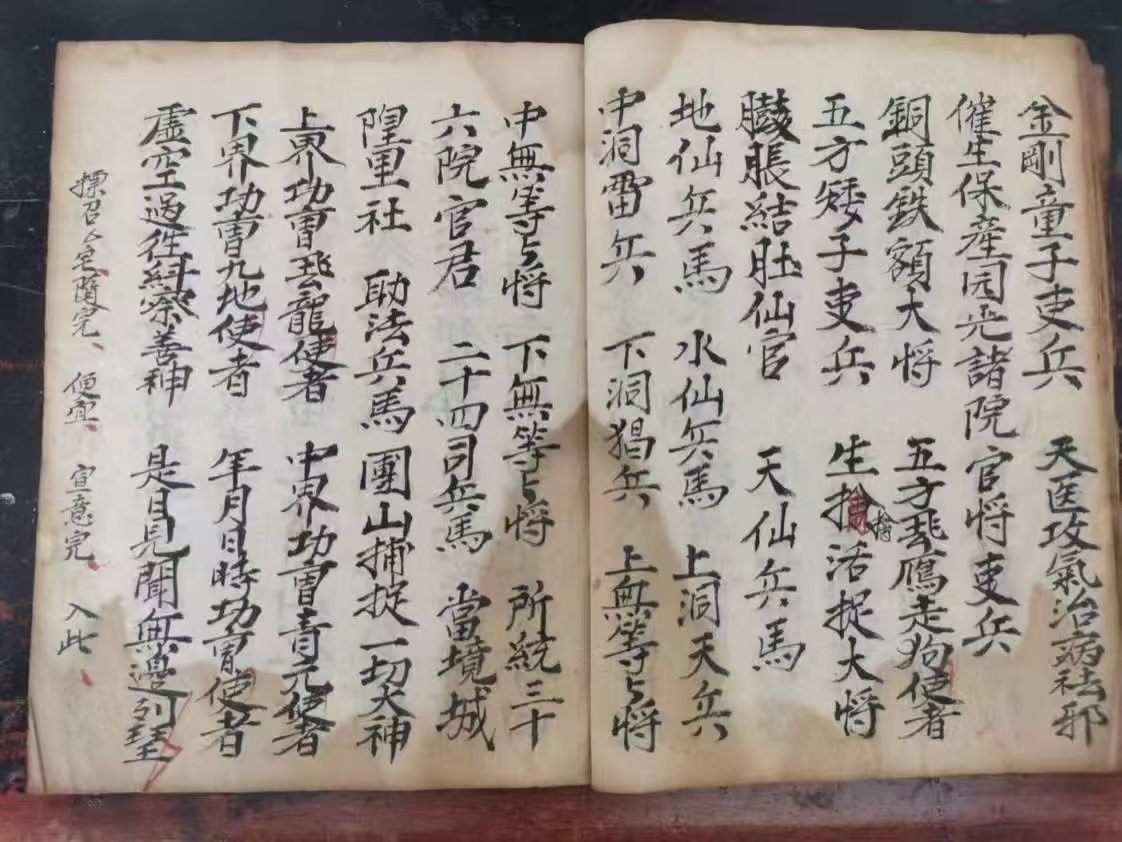 金剛童子吏兵 天医攻氣治病祛邪
催生保産园光諸院官将吏兵
銅頭鉄額大将 五方飛鷹走狗使者
五方矮子吏兵 生擒活捉大将
臌脹結肚仙官 天仙兵馬
地仙兵馬 水仙兵馬 上洞天兵
中洞雷兵 下洞猖兵 上無等等将
中無等等将 下無等等将 所統三十
六院官君 二十四司兵馬 當境城
隍里社 助法兵馬 團山捕捉一切大神
上界功曹飛龍使者 中界功曹青元使者
下界功曹九地使者 年月日時功曹使者
虛空過往糾察善神 是日見聞無邊列聖
摽召 完 完、便宜、宣意完、入此、